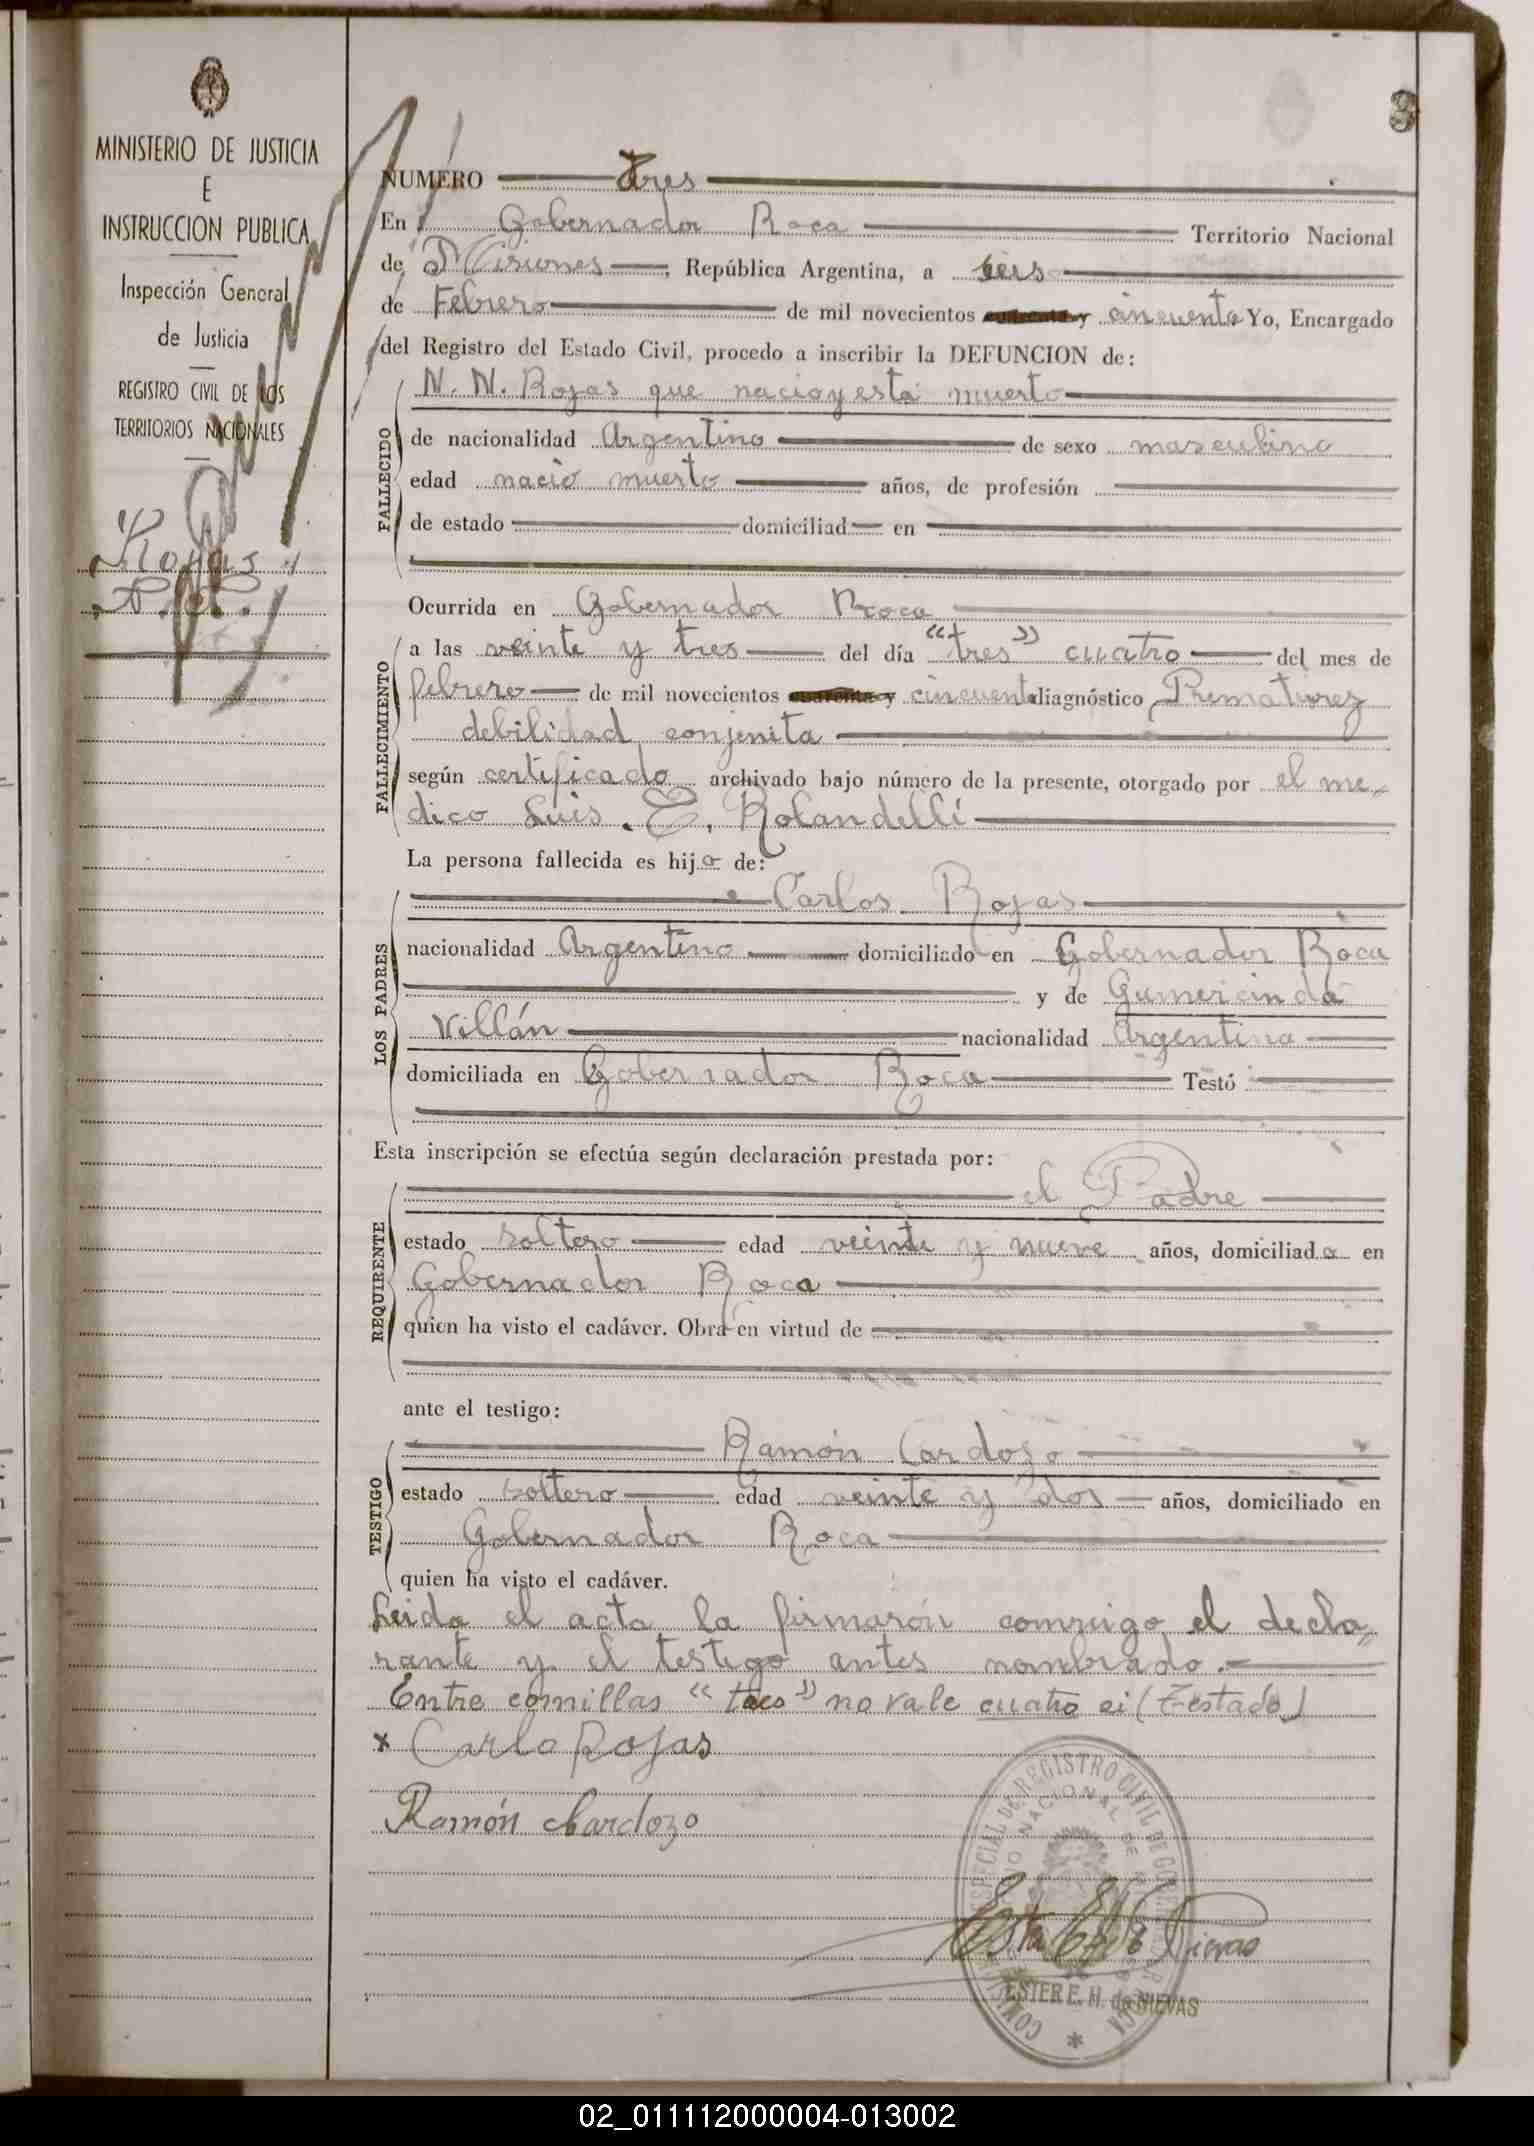 3
MINISTERIO DE JUSTICIA
E
INSTRUCCION PUBLICA
Inspección General
de Justicia
REGISTRO CIVIL DE LOS
TERRITORIOS NACIONALES
Rojas
N. N.
NUMERO Tres
En Gobernador Roca Territorio Nacional
de Misiones, República Argentina, a seis
de Febrero de mil novecientos cuarenta y cincuenta Yo, Encargado
del Registro del Estado Civil, procedo a inscribir la DEFUNCION de:
FALLECIDO
N. N. Rojas que nacio y esta muerto
de nacionalidad Argentino de sexo masculino
edad nació muerto años, de profesión
de estado domiciliad en
Ocurrida en Gobernador Roca
FALLECIMIENTO
a las veinte y tres del día "tres" cuatro del mes de
febrero de mil novecientos cuarenta y cincuenta diagnóstico Prematurez
debilidad conjenita
según certificado archivado bajo número de la presente, otorgado por el me-
dico Luis. E. Rolandelli
La persona fallecida es hijo de:
LOS PADRES
Carlos Rojas
nacionalidad Argentino domiciliado en Gobernador Roca
y de Gumercinda
Villán nacionalidad Argentina
domiciliada en Gobernador Roca Testó
Esta inscripción se efectúa según declaración prestada por:
REQUIRENTE
el Padre
estado soltero edad veinte y nueve años, domiciliado en
Gobernador Roca
quien ha visto el cadáver. Obra en virtud de
ante el testigo:
TESTIGO
Ramón Cardozo
estado soltero edad veinte y dos años, domiciliado en
Gobernador Roca
quien ha visto el cadáver.
Leida el acta la firmarón conmigo el decla
rante y el testigo antes nombrado.
Entre comillas "tres" no vale cuatro si (Testado)
x Carlo Rojas
Ramón Cardozo
ESTER E. H. de NIEVAS
02_011112000004-013002